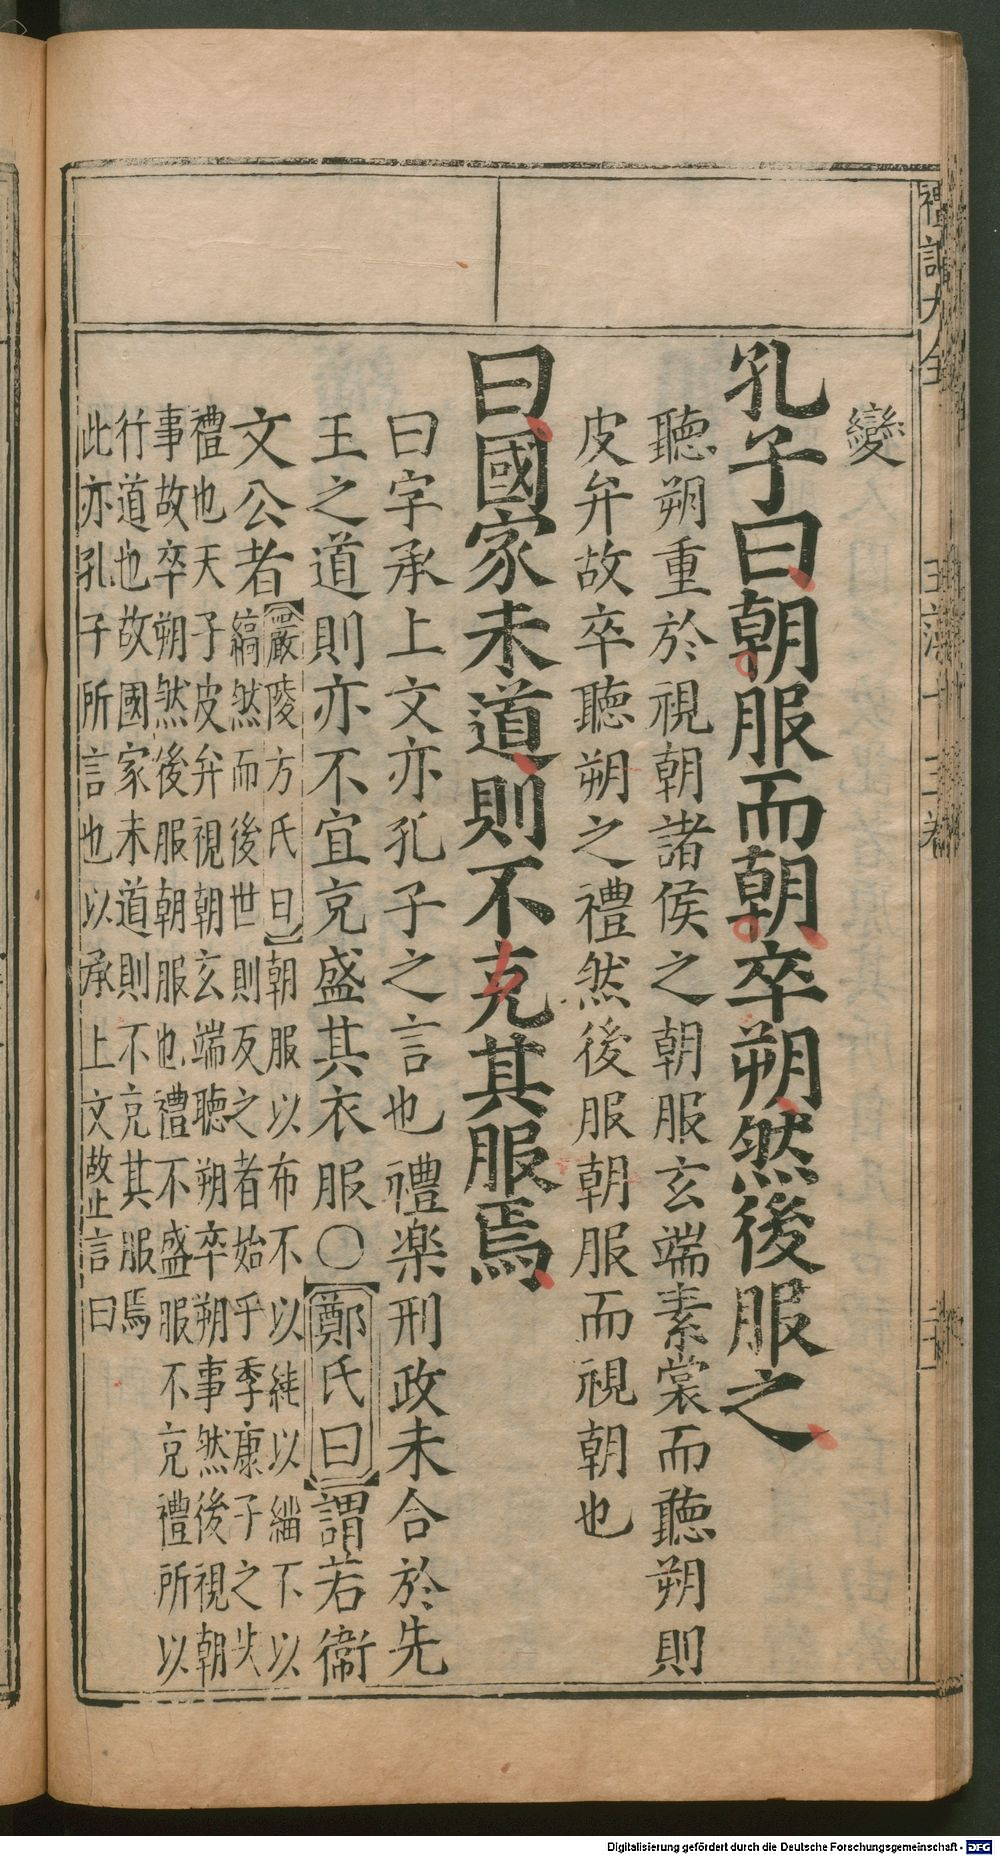 禮記大全
玉藻十三卷
變
孔子曰朝服而朝卒朔然後服之
聽朔重於視朝諸侯之朝服玄端素裳而聽朔則
皮弁故卒聽朔之禮然後服朝服而視朝也
曰國家未道則不克其服焉
曰字承上文亦孔子之言也禮楽刑政未合於先
王之道則亦不宜克盛其衣服〇鄭氏曰謂若衞
文公者
嚴陵方氏曰朝服以布不以純以緇不以
縞然而後世則反之者始乎季康子之失
禮也天子皮弁視朝玄端聽朔卒朔事然後視朝
事故卒朔然後服朝服也禮不盛服不克禮所以
行道也故國家未道則不克其服焉
此亦孔子所言也以承上文故止言曰
Digitalisierung gefördert durch die Deutsche Forschungsgemeinschaft - DFG